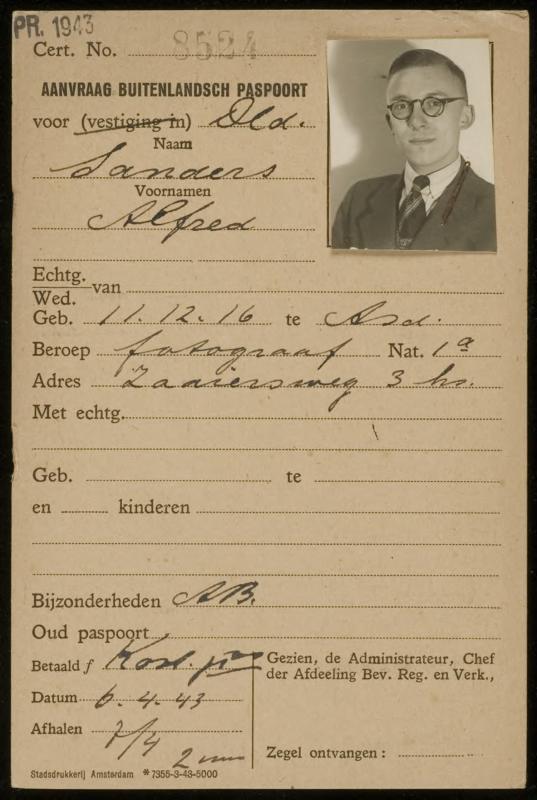 PR. 1943
Cert. No. 8524
AANVRAAG BUITENLANDSCH PASPOORT
voor (vestiging in) Dld.
Naam
Sanders
Voornamen
Alfred
Echtg.
Wed. van
Geb. 11.12.16 te Asd.
Beroep fotograaf Nat. 1a
Adres Zaaiersweg 3 hs.
Met echtg.
Geb. te
en kinderen
Bijzonderheden AB.
Oud paspoort
Betaald f
Gezien, de Administrateur, Chef
der Afdeeling Bev. Reg. en Verk.,
Datum 6.4.43
Afhalen 7/4
2 uur
Zegel ontvangen :
Stadsdrukkerij Amsterdam *7355-3-43-5000